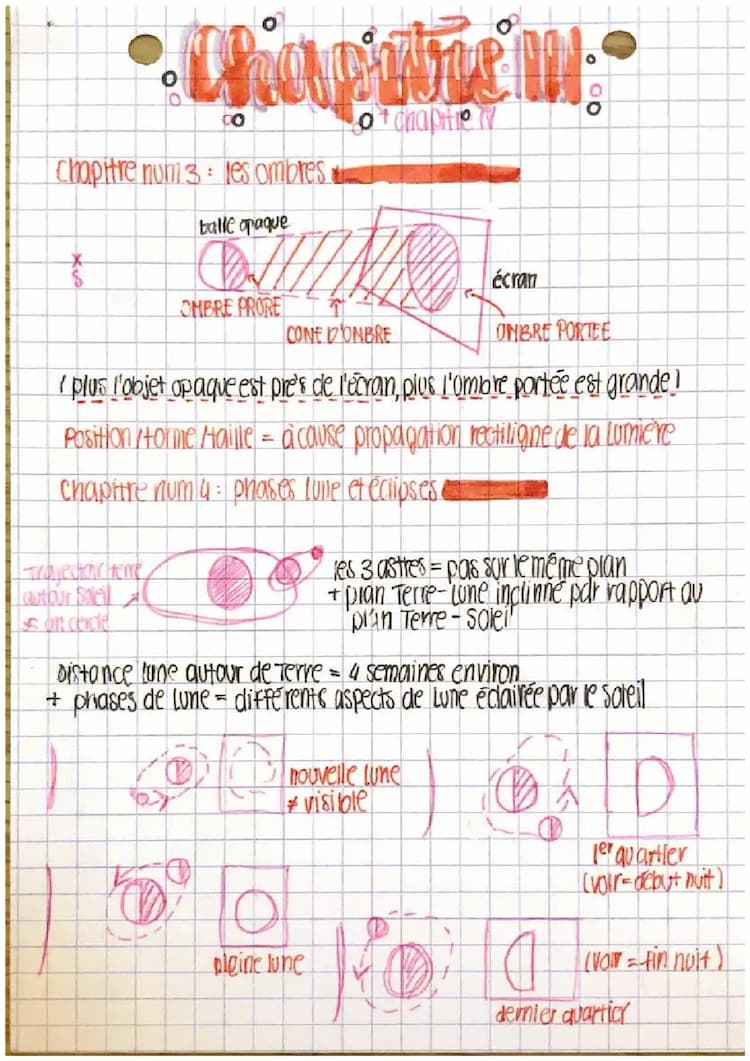 Chapitre III
+ chapitre IV
Chapitre num 3 : les ombres
balle opaque
x
S
écran
OMBRE PRORE
CONE D'OMBRE
OMBRE PORTEE
! plus l'objet opaque est près de l'écran, plus l'ombre portée est grande !
Position / forme / taille = à cause propagation rectiligne de la lumière
Chapitre num 4 : phases lune et éclipses
Trajectoir terre
autour Soleil
un cercle
les 3 astres = pas sur le même plan
+ plan Terre-Lune inclinné par rapport au
plan Terre - Soleil
Distance lune autour de Terre = 4 semaines environ
+ phases de lune = différents aspects de Lune éclairée par le soleil
nouvelle lune
≠ visible
1er quartier
(voir = début nuit)
pleine lune
(voir = fin nuit)
dernier quartier